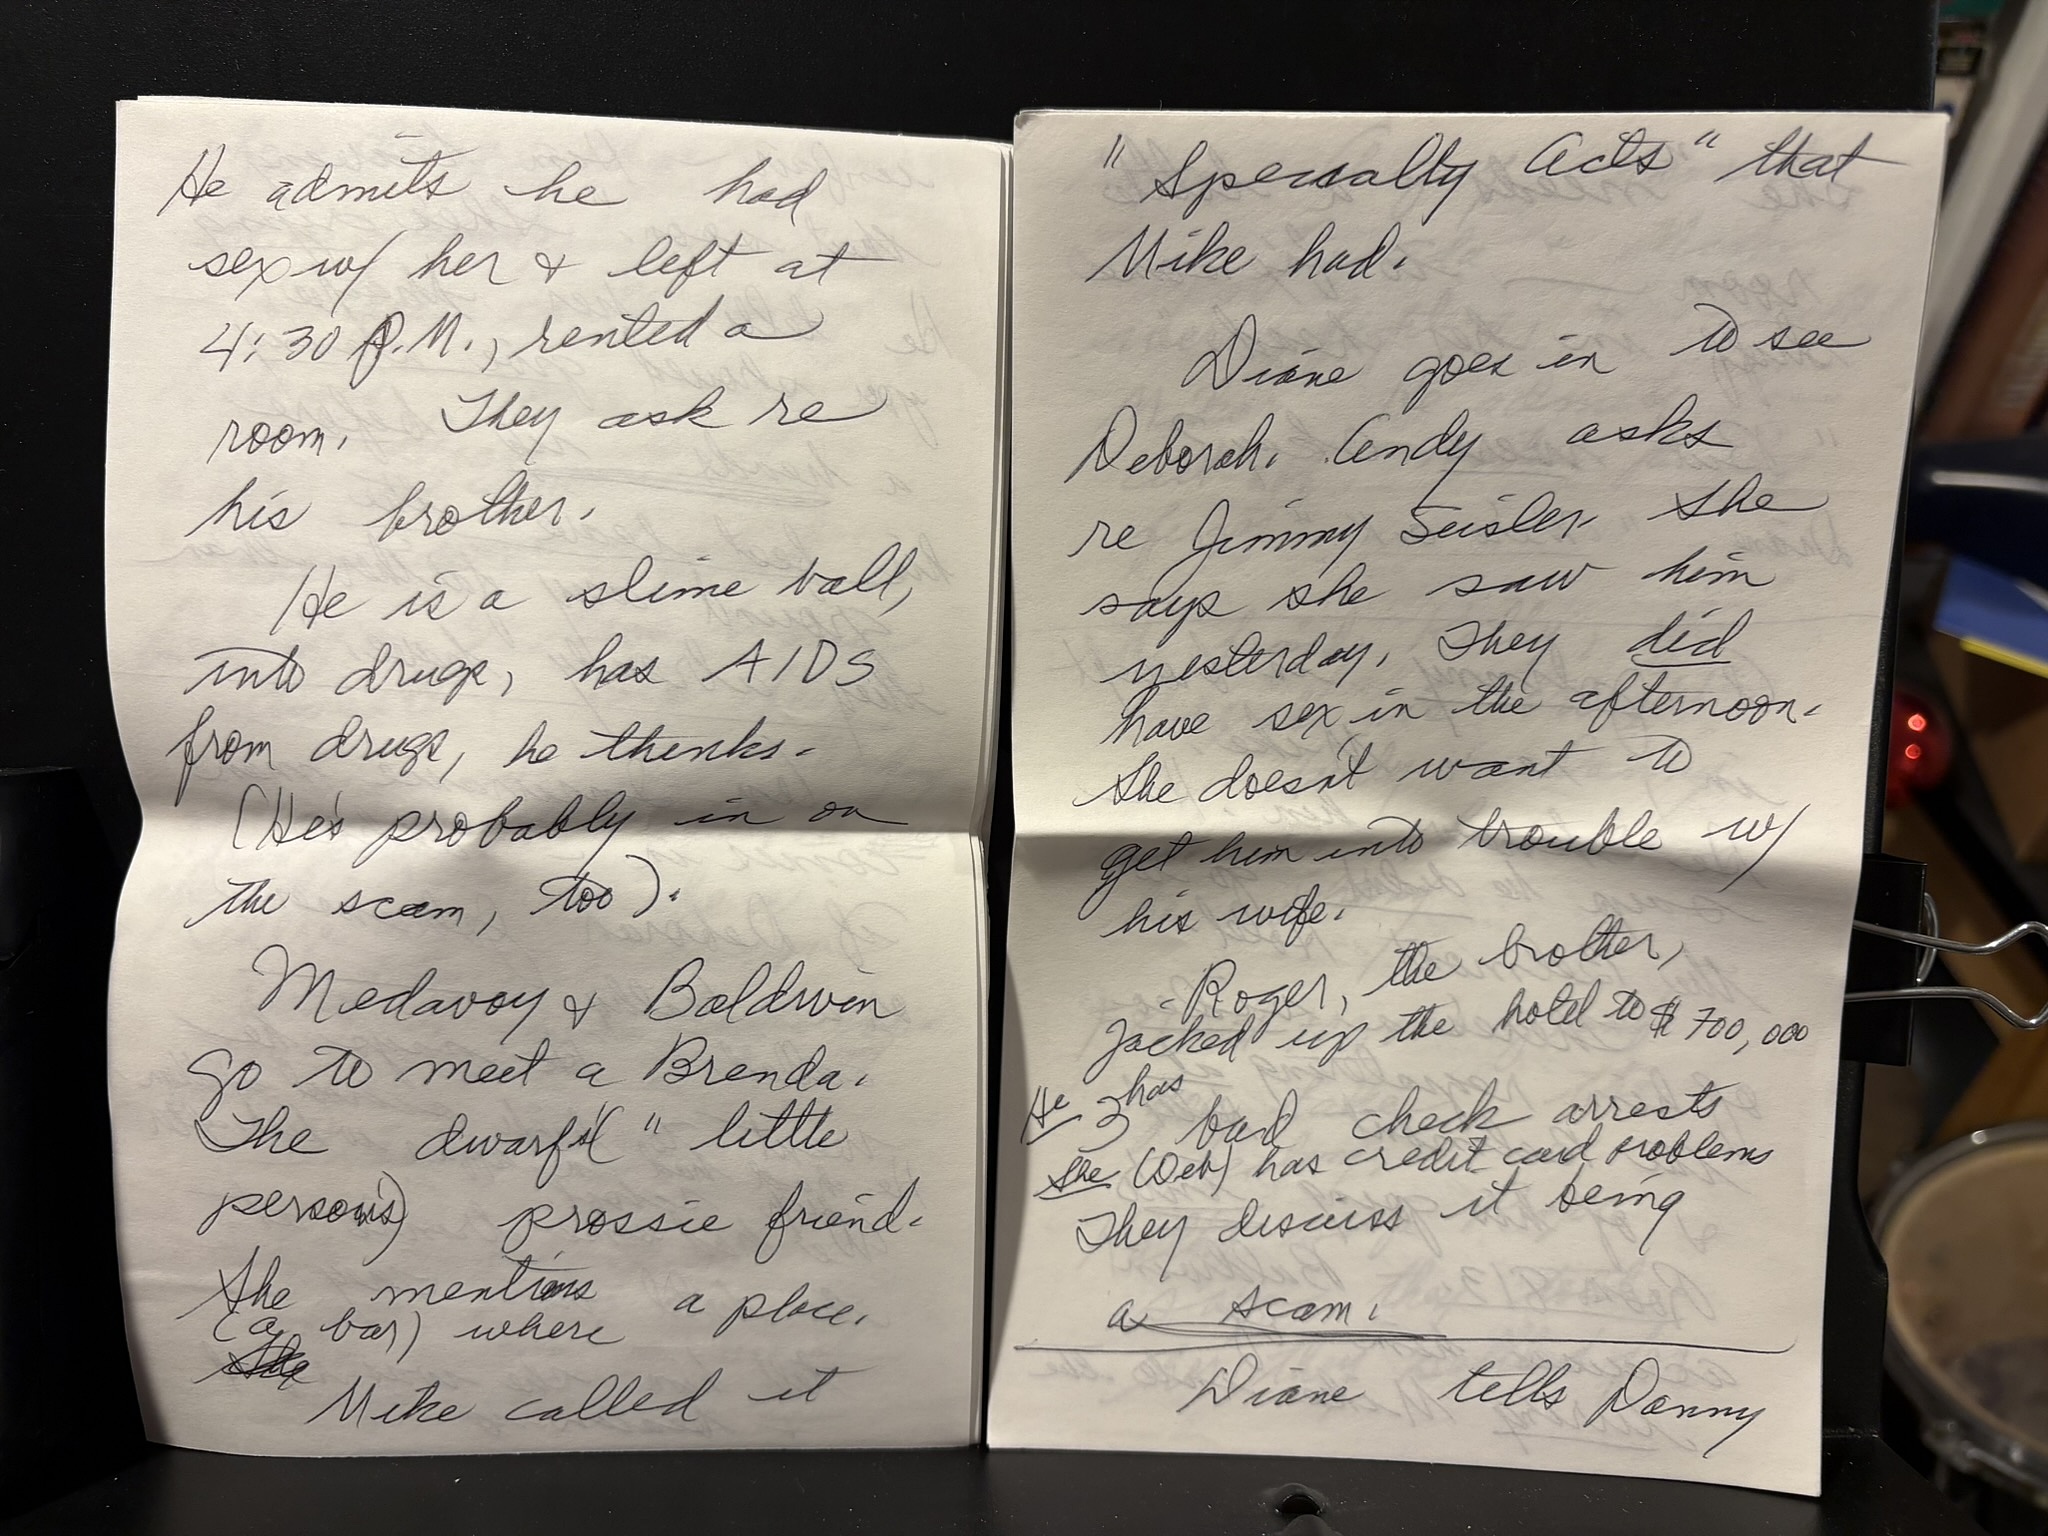 He admits he had
sex w/ her & left at
4:30 P.M., rented a
room. They ask re
his brother.
He is a slime ball,
into drugs, has AIDS
from drugs, he thinks.
(He's probably in on
the scam, too).
Medavoy & Baldwin
go to meet a Brenda.
The dwarf's ("little
person's) prossie friend.
She mentions a place.
(a bar) where
Mike called it
"Specialty Acts" that
Mike had.
Diane goes in to see
Deborah. Andy asks
re Jimmy Seisler. She
says she saw him
yesterday. They did
have sex in the afternoon.
She doesn't want to
get him into trouble w/
his wife.
Roger, the brother,
jacked up the hotel to $700,000
He has
3 bad check arrests
She (Deb) has credit card problems
They discuss it being
a scam.
Diane tells Danny